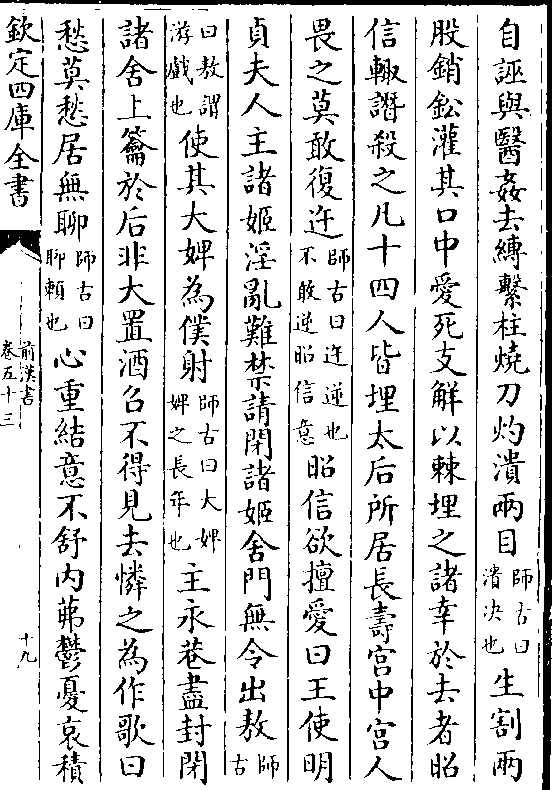 自誣與醫姦去縛繫柱燒刀灼潰兩目師古曰潰決也生割兩
股銷鈆灌其口中愛死支解以棘埋之諸幸於去者昭
信輙譖殺之凡十四人皆埋太后所居長壽宫中宫人
畏之莫敢復迕師古曰迕逆也不敢逆昭信意昭信欲擅愛曰王使明
貞夫人主諸姬淫亂難禁請閉諸姬舍門無令出敖師古
曰敖謂游戲也使其大婢為僕射師古曰大婢婢之長年也主永巷盡封閉
諸舍上籥於后非大置酒召不得見去憐之為作歌曰
愁莫愁居無聊師古曰聊賴也心重結意不舒内茀鬱憂哀積
欽定四庫全書
前漢書
卷五十三
十九